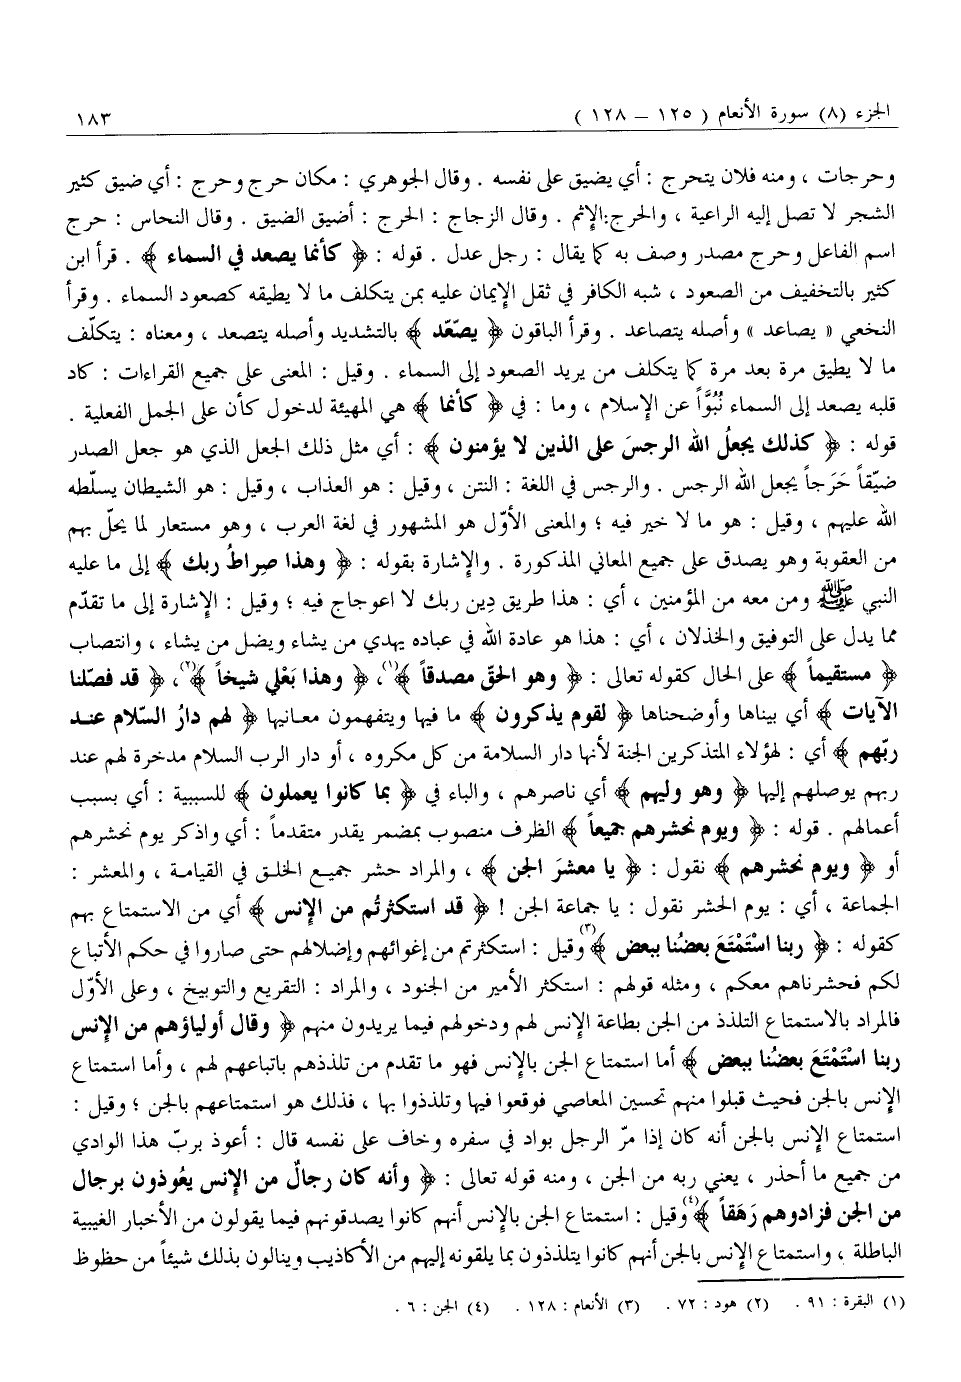 الجزء (٨) سورة الأنعام ( ١٢٥ – ١٢٨ ) ١٨٣
وحرجات ، ومنه فلان يتحرج : أي يضيق على نفسه . وقال الجوهري : مكان حرج وحرج : أي ضيق كثير
الشجر لا تصل إليه الراعية ، والحرج:الإثم . وقال الزجاج : الحرج : أضيق الضيق . وقال النحاس : حرج
اسم الفاعل وحرج مصدر وصف به كما يقال : رجل عدل . قوله : ﴿ كأنما يصعد في السماء ﴾ . قرأ ابن
كثير بالتخفيف من الصعود ، شبه الكافر في ثقل الإيمان عليه بمن يتكلف ما لا يطيقه كصعود السماء . وقرأ
النخعي « يصاعد » وأصله يتصاعد . وقرأ الباقون ﴿ يصّعّد ﴾ بالتشديد وأصله يتصعد ، ومعناه : يتكلّف
ما لا يطيق مرة بعد مرة كما يتكلف من يريد الصعود إلى السماء . وقيل : المعنى على جميع القراءات : كاد
قلبه يصعد إلى السماء نُبُوَّاً عن الإسلام ، وما : في ﴿ كأنما ﴾ هي المهيئة لدخول كأن على الجمل الفعلية .
قوله : ﴿ كذلك يجعلُ الله الرجسَ على الذين لا يؤمنون ﴾ : أي مثل ذلك الجعل الذي هو جعل الصدر
ضيّقاً حَرَجاً يجعل الله الرجس . والرجس في اللغة : النتن ، وقيل : هو العذاب ، وقيل : هو الشيطان يسلّطه
الله عليهم ، وقيل : هو ما لا خير فيه ؛ والمعنى الأوّل هو المشهور في لغة العرب ، وهو مستعار لما يحلّ بهم
من العقوبة وهو يصدق على جميع المعاني المذكورة . والإشارة بقوله : ﴿ وهذا صِراطُ ربك ﴾ إلى ما عليه
النبي ﷺ ومن معه من المؤمنين ، أي : هذا طريق دِين ربك لا اعوجاج فيه ؛ وقيل : الإشارة إلى ما تقدّم
مما يدل على التوفيق والخذلان ، أي : هذا هو عادة الله في عباده يهدي من يشاء ويضل من يشاء ، وانتصاب
﴿ مستقيماً ﴾ على الحال كقوله تعالى : ﴿ وهو الحقّ مصدقاً ﴾(١)، ﴿ وهذا بَعْلي شيخاً ﴾(٢)، ﴿ قد فصّلنا
الآيات ﴾ أي بيناها وأوضحناها ﴿ لقوم يذكرون ﴾ ما فيها ويتفهمون معـانيها ﴿ لهم دارُ السّلام عنـد
ربّهم ﴾ أي : لهؤلاء المتذكرين الجنة لأنها دار السلامة من كل مكروه ، أو دار الرب السلام مدخرة لهم عند
ربهم يوصلهم إليها ﴿ وهو وليهم ﴾ أي ناصرهم ، والباء في ﴿ بما كانوا يعملون ﴾ للسببية : أي بسبب
أعمالهم . قوله : ﴿ ويوم نحشرهم جميعاً ﴾ الظرف منصوب بمضمر يقدر متقدماً : أي واذكر يوم نحشرهم
أو ﴿ ويوم نحشرهم ﴾ نقول : ﴿ يا معشرَ الجن ﴾ ، والمراد حشر جميـع الخلـق في القيامـة ، والمعشر :
الجماعة ، أي : يوم الحشر نقول : يا جماعة الجن ! ﴿ قد استكثرتُم من الإنس ﴾ أي من الاستمتاع بهم
كقوله : ﴿ ربنا اسْتَمْتَعَ بعضُنا ببعض ﴾(٣) وقيل : استكثرتم من إغوائهم وإضلالهم حتى صاروا في حكم الأتباع
لكم فحشرناهم معكم ، ومثله قولهم : استكثر الأمير من الجنود ، والمراد : التقريع والتوبيخ ، وعلى الأوّل
فالمراد بالاستمتاع التلذذ من الجن بطاعة الإنس لهم ودخولهم فيما يريدون منهم ﴿ وقال أولياؤهم من الإنس
ربنا اسْتَمْتَعَ بعضُنا ببعض ﴾ أما استمتاع الجن بالإنس فهو ما تقدم من تلذذهم باتباعهم لهم ، وأما استمتاع
الإنس بالجن فحيث قبلوا منهم تحسين المعاصي فوقعوا فيها وتلذذوا بها ، فذلك هو استمتاعهم بالجن ؛ وقيل :
استمتاع الإنس بالجن أنه كان إذا مرّ الرجل بواد في سفره وخاف على نفسه قال : أعوذ بربّ هذا الوادي
من جميع ما أحذر ، يعني ربه من الجن ، ومنه قوله تعالى : ﴿ وأنه كان رجالٌ من الإنس يعُوذون برجال
من الجن فزادوهم رَهَقاً ﴾(٤) وقيل : استمتاع الجن بالإنس أنهم كانوا يصدقونهم فيما يقولون من الأخبار الغيبية
الباطلة ، واستمتاع الإنس بالجن أنهم كانوا يتلذذون بما يلقونه إليهم من الأكاذيب وينالون بذلك شيئاً من حظوظ
(١) البقرة : ٩١ . (٢) هود : ٧٢ . (٣) الأنعام : ١٢٨ . (٤) الجن : ٦ .